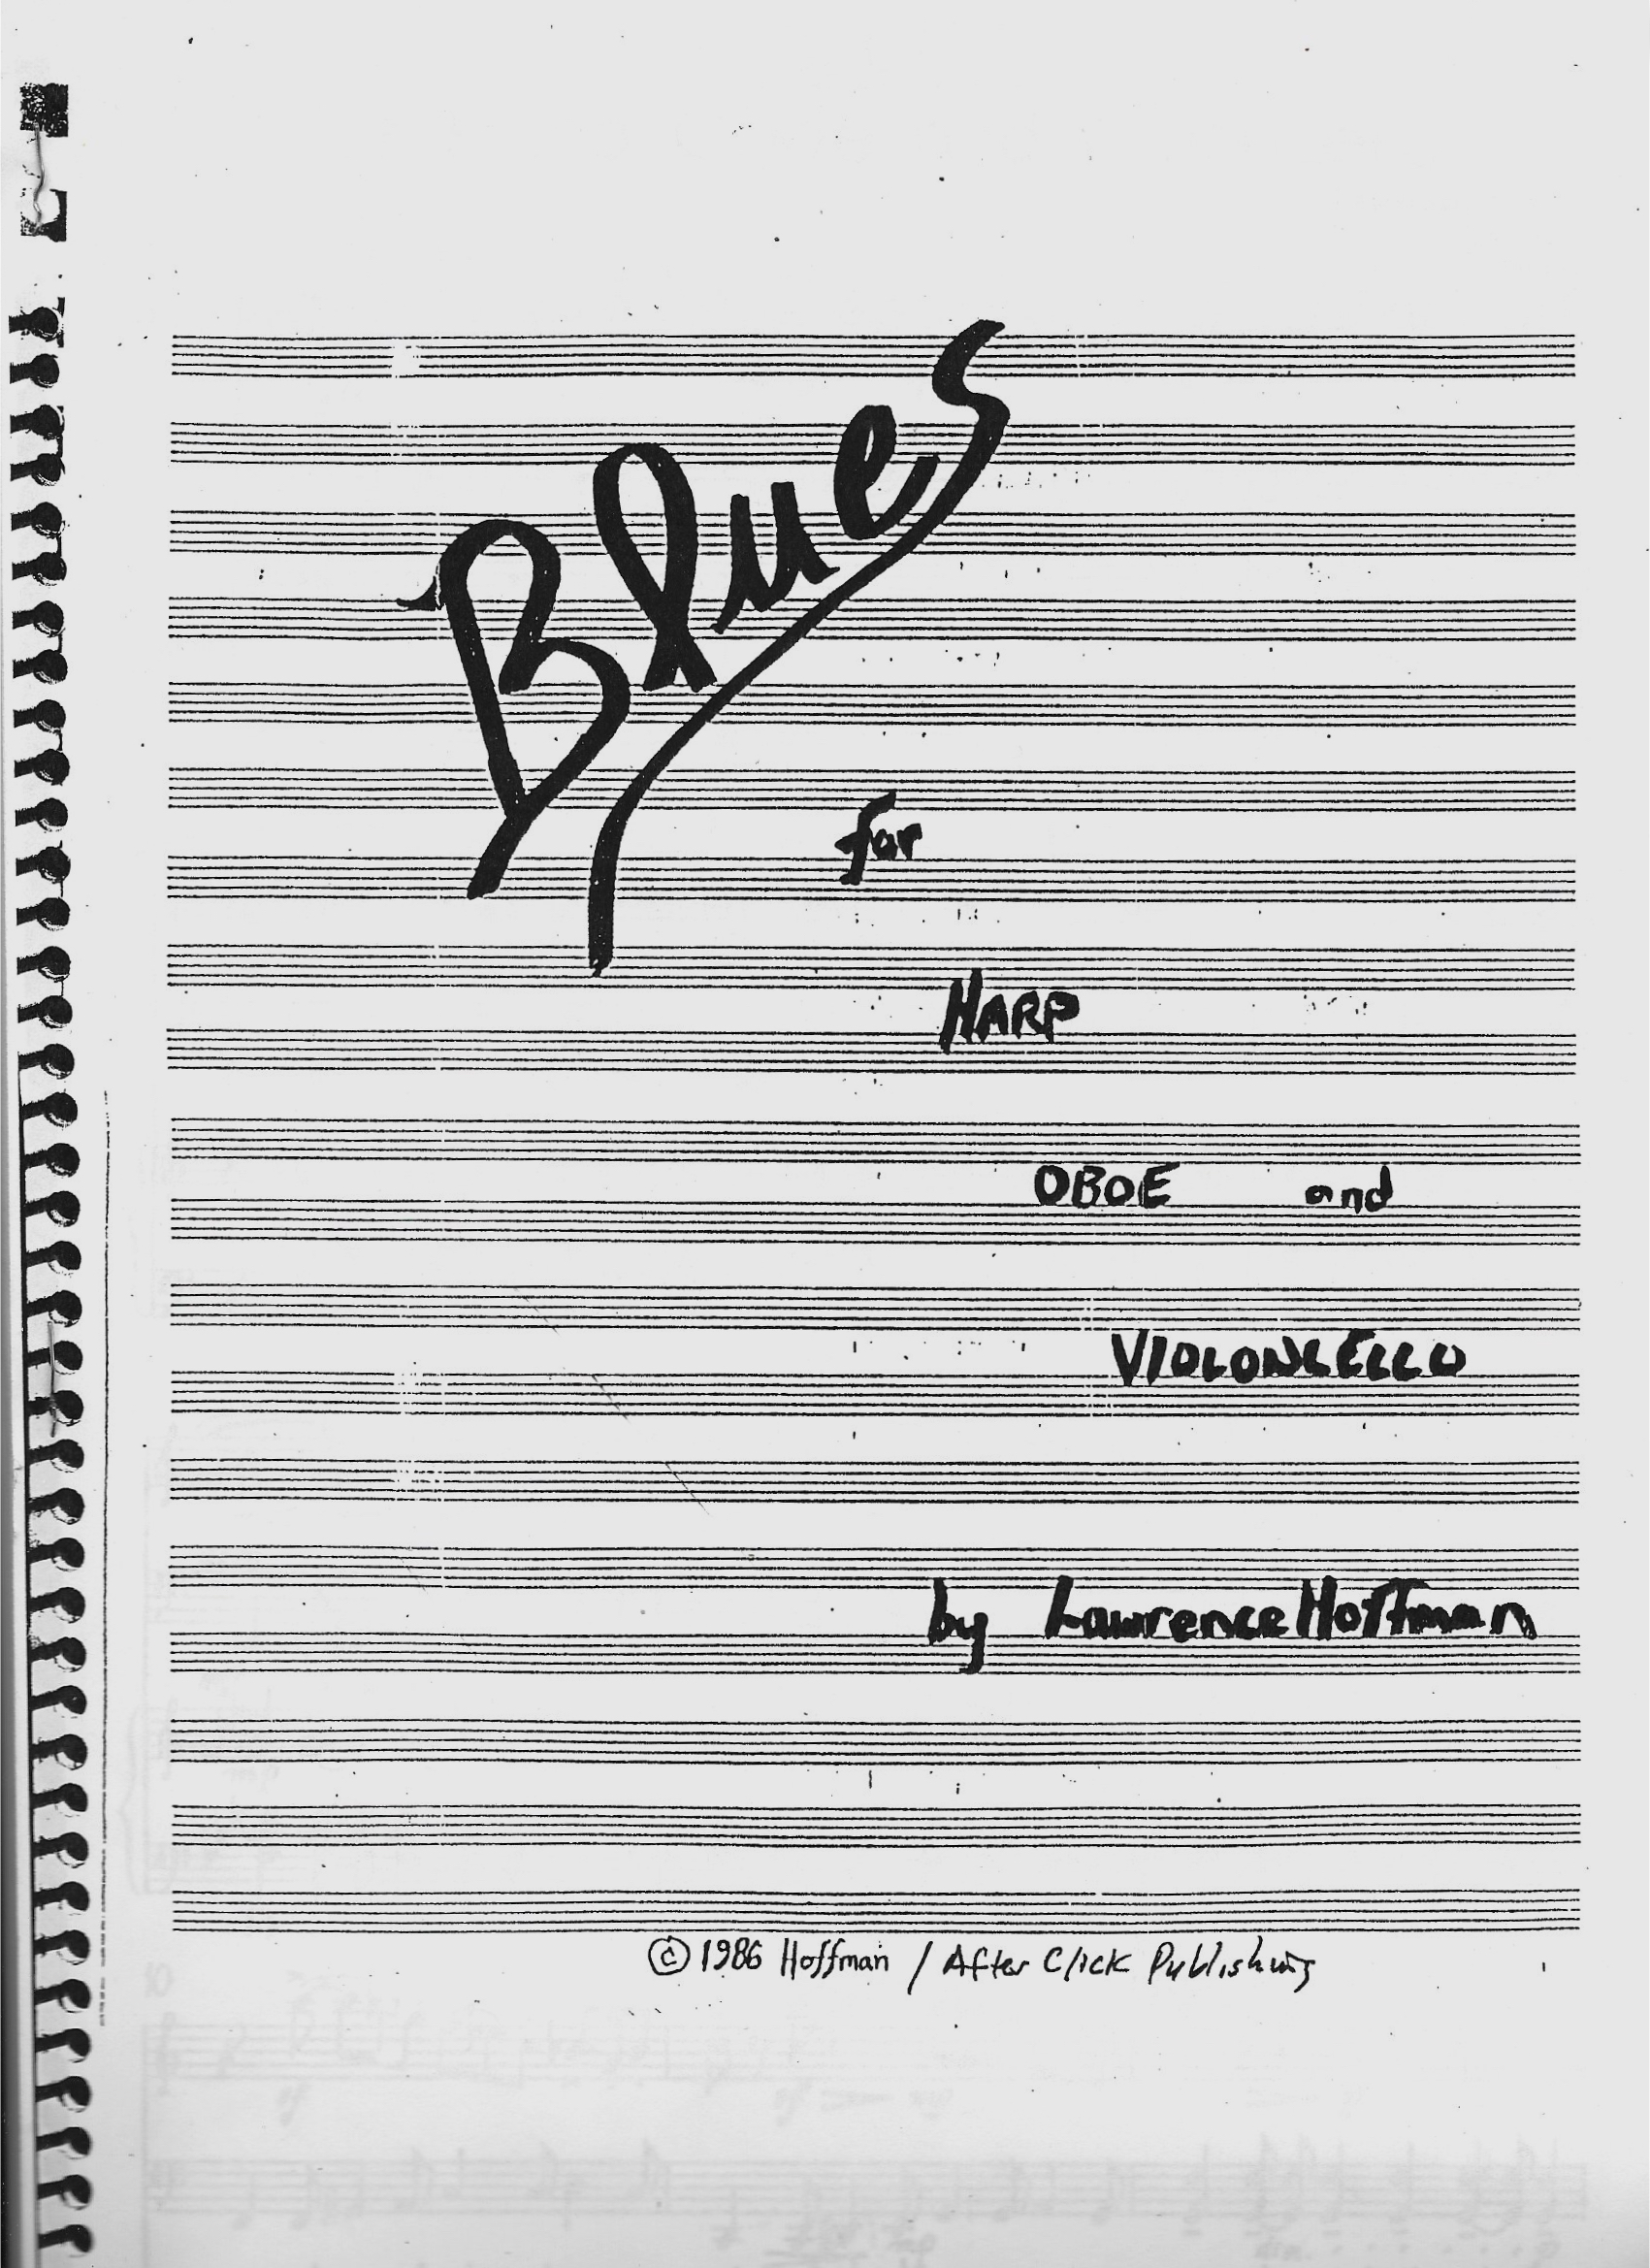 Blues
for
HARP
OBOE and
VIOLONCELLO
by Lawrence Hoffman
© 1986 Hoffman / After Click Publishing